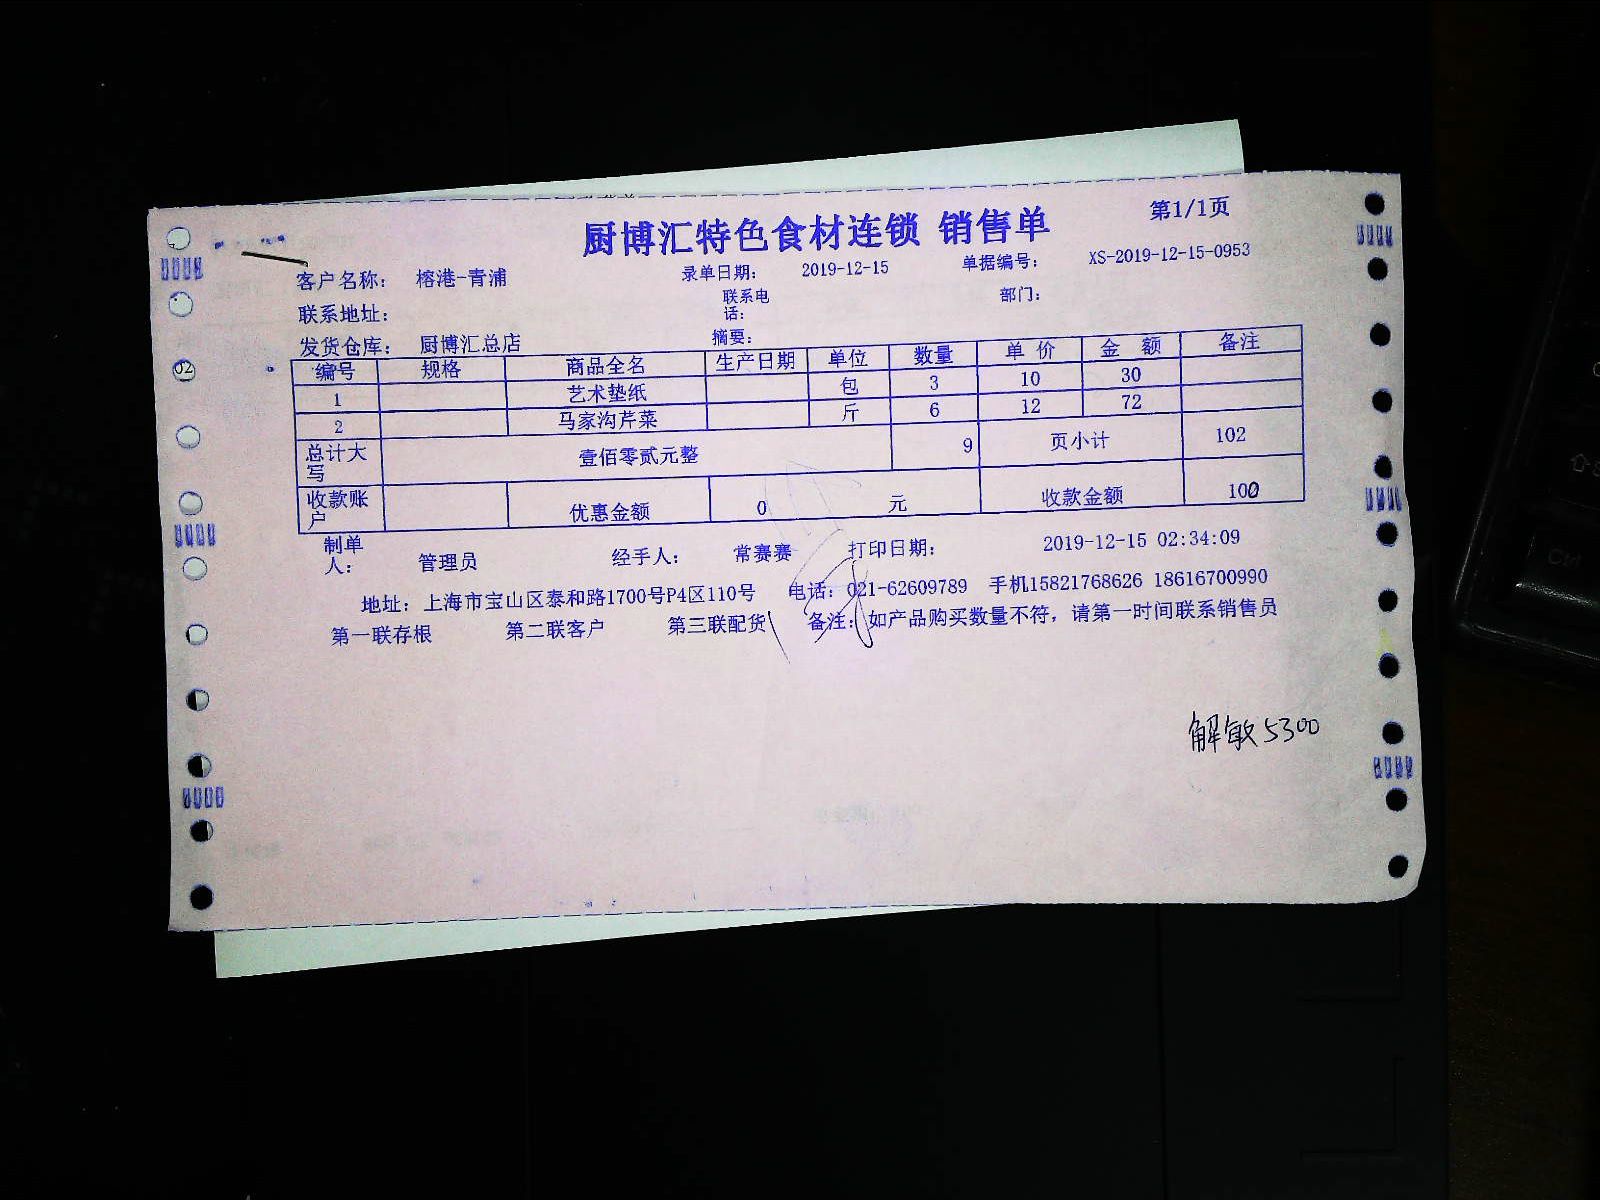 厨博汇特色食材连锁 销售单 第1/1页
客户名称： 榕港-青浦 录单日期： 2019-12-15 单据编号： XS-2019-12-15-0953
联系地址： 联系电话： 部门：
发货仓库： 厨博汇总店 摘要：
编号 规格 商品全名 生产日期 单位 数量 单 价 金 额 备注
1 艺术垫纸 包 3 10 30
2 马家沟芹菜 斤 6 12 72
总计大写 壹佰零贰元整 9 页小计 102
收款账户 优惠金额 0 元 收款金额
制单人： 管理员 经手人： 常赛赛 打印日期： 2019-12-15 02:34:09
地址： 上海市宝山区泰和路1700号P4区110号 电话：021-62609789 手机15821768626 18616700990
第一联存根 第二联客户 第三联配货 备注：如产品购买数量不符，请第一时间联系销售员
解敏5300